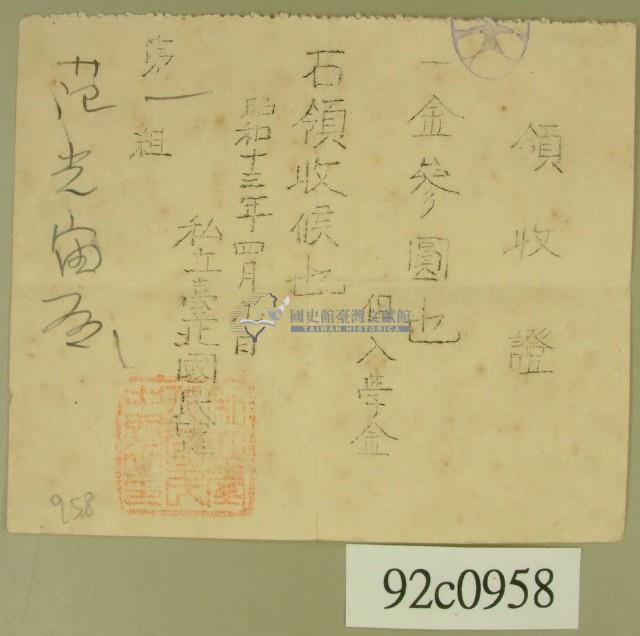 領收證
一金參圓也
但入學金
右領收候也
昭和十三年四月 日
私立臺北國民
第一組
范光宙
國史館臺灣文獻館
TAIWAN HISTORICA
958
92c0958